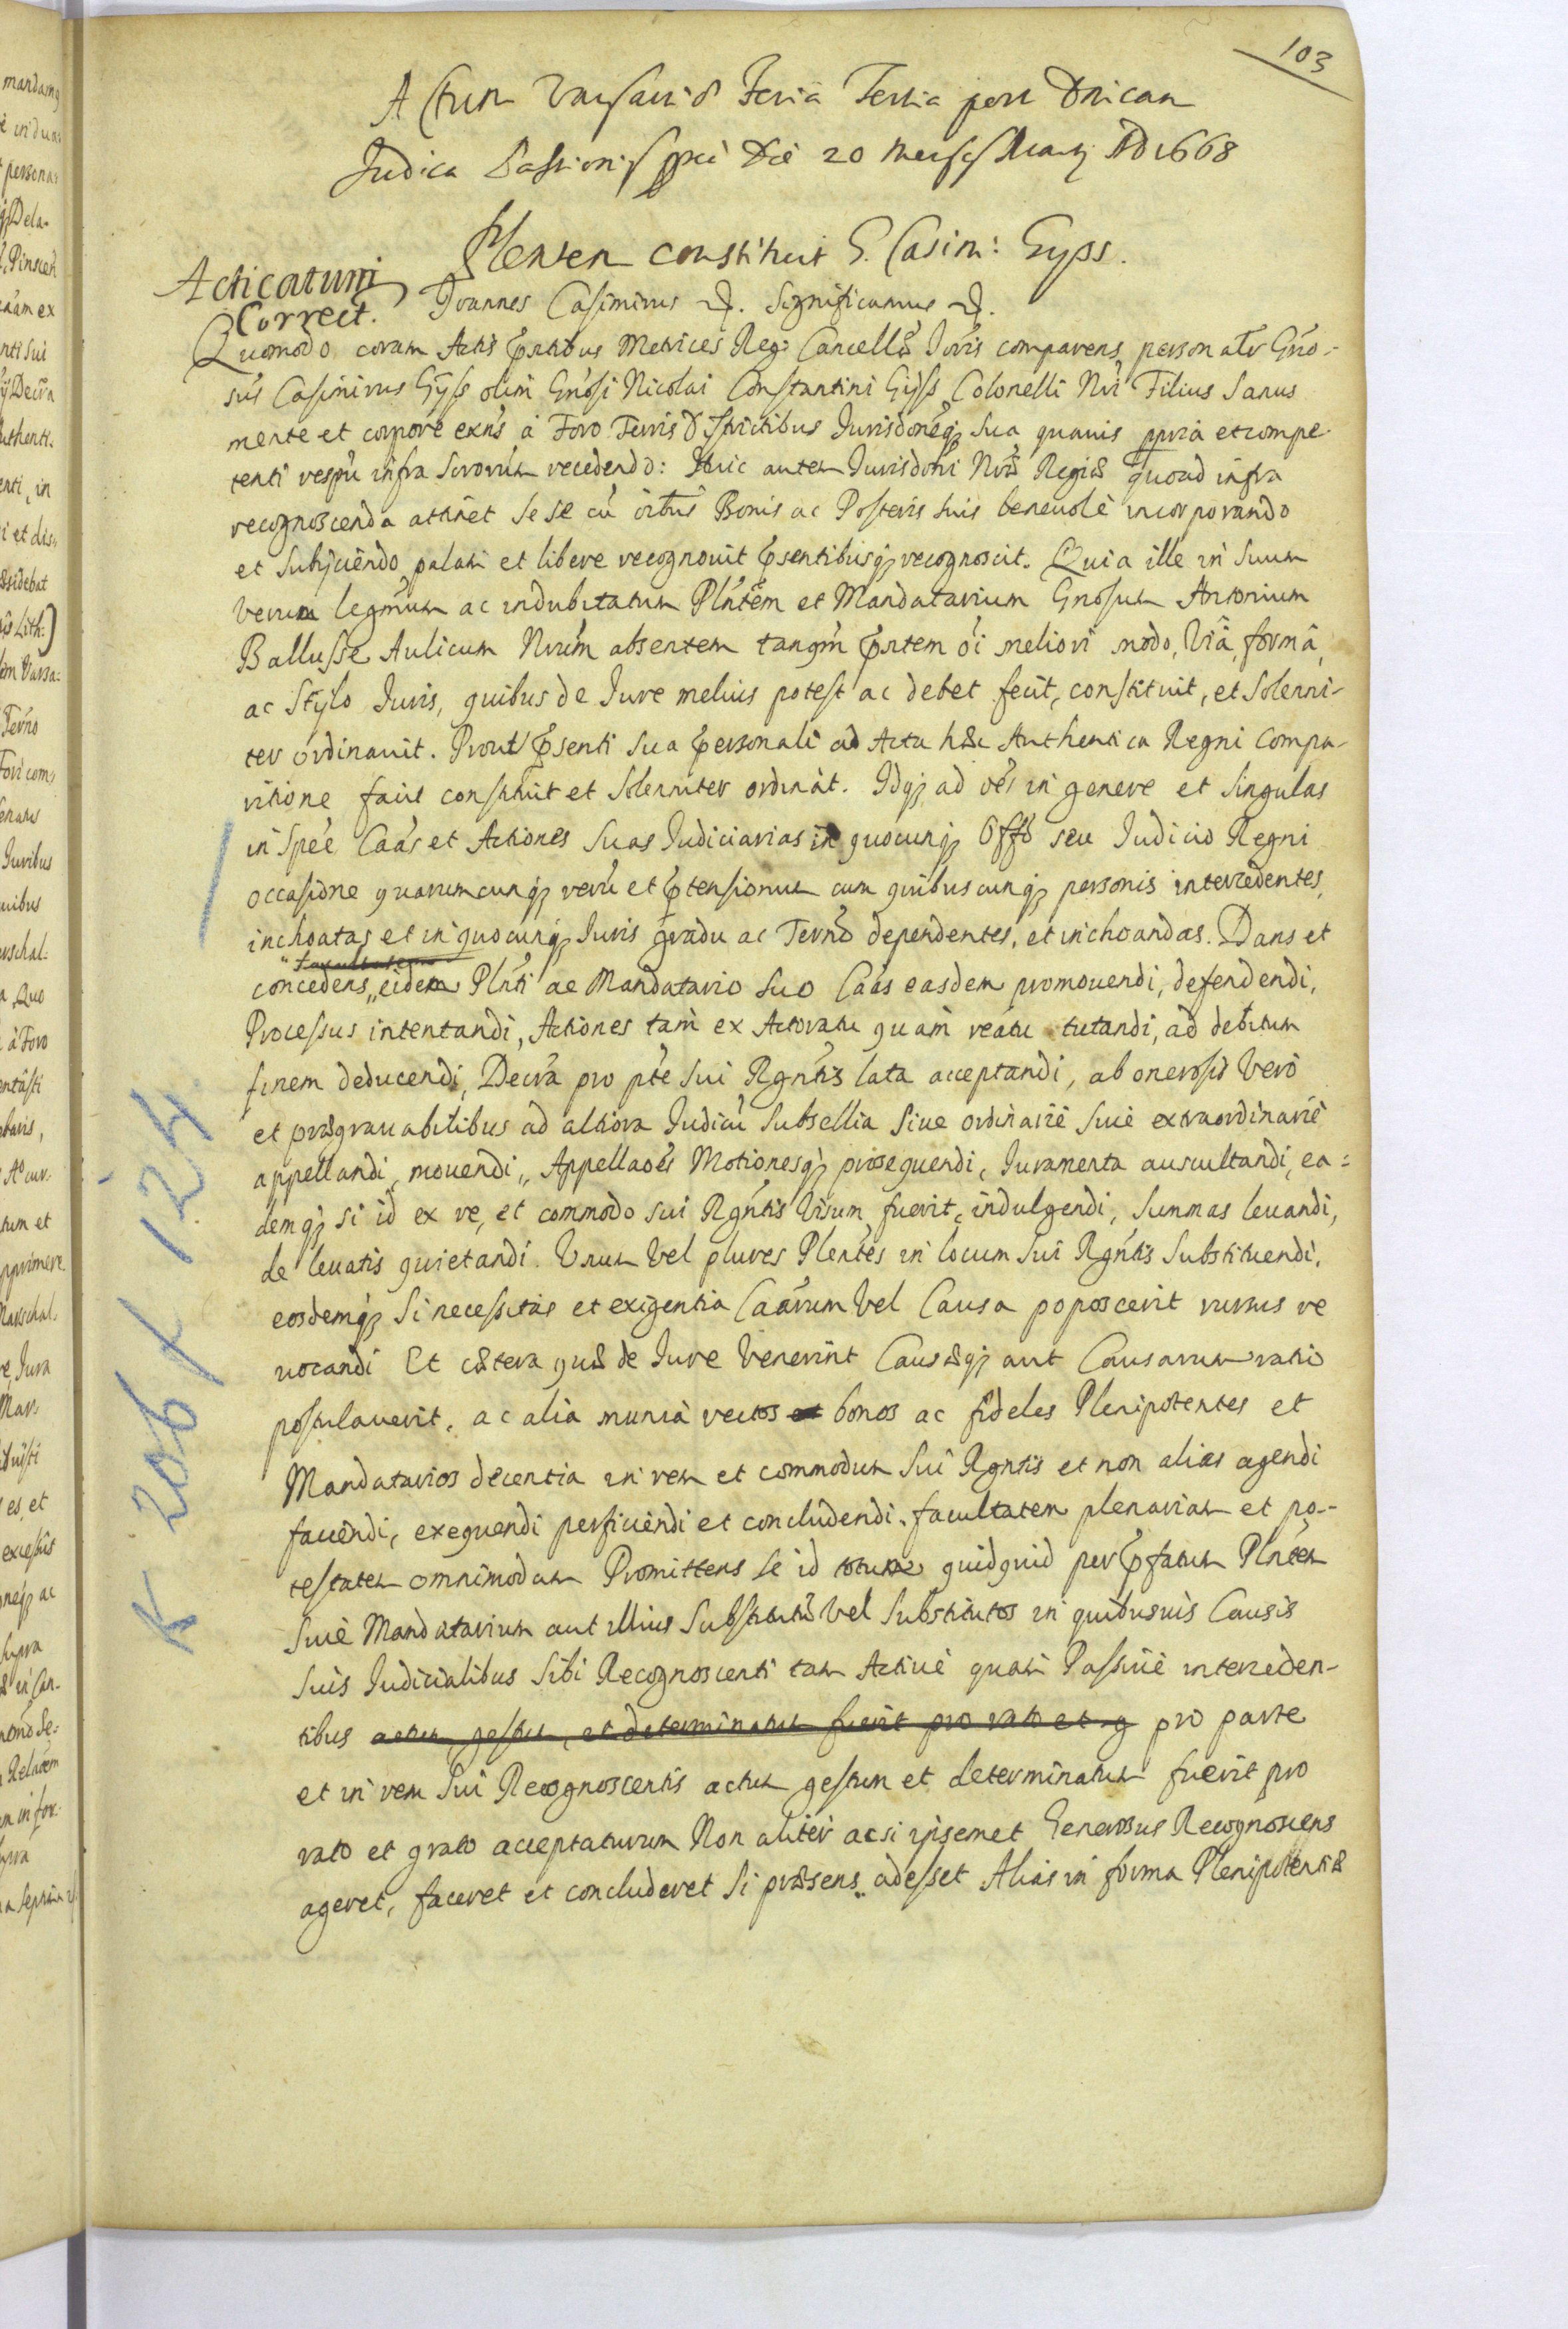 103
Actum Varsaviæ Feria Tertia post Dnicam
Judica Passionis Die 20 Mensis Martij AD 1668
Plenten constituit G. Casim: Gyss.
Acticatum
Correct.
Joannes Casimirus Significamus
Quomodo coram Actis pntibus Metrices Reg: Cancellæ Joris comparens personalr Gno-
sus Casimirus Gÿss olim Gnosi Nicolai Constantini Gÿss Colonelli Nri Filius Sanus
mente et corpore exns à Foro Terris Districtibus Jurisdoneq; sua quauis ppria et compe-
tenti respu infra scrorum recedendo: Huic autem Jurisdoni Nræ Regiæ quoad infra
recognoscenda attinet se se cu oibus Bonis ac Posteris suis beneuole incorporando
et subjiciendo palam et libere recognouit psentibusq; recognoscit. Quia ille in suum
verum legmum ac indubitatum Plntem et Mandatarium Gnosum Antonium
Ballusse Aulicum Nrum absentem tanqm pntem oi meliori modo, Viâ, formâ,
ac stylo Juris, quibus de Jure melius potest ac debet fecit, constituit, et solenni-
ter ordinauit. Prout psenti sua personali ad Acta hæc Authentica Regni Compa-
ritione facit constituit et solenniter ordinat. Idq; ad oes in genere et singulas
in spee Caas et Actiones suas Judiciarias in quocunq; Offo seu Judicio Regni
occasione quarumcunq; reru et ptensionum cum quibuscunq; personis intercedentes,
inchoatas et in quocunq; Juris gradu ac Terno dependentes, et inchoandas. Dans et
facultatem
concedens eidem Plnti ac Mandatario suo Caas easdem promouendi, defendendi,
Processus intentandi, Actiones tam ex Actoratu quam reatu tutandi, ad debitum
finem deducendi, Decra pro pte sui Rgntis lata acceptandi, ab onerosis vero
et prægrauabilibus ad altiora Judicii Subsellia siue ordinarie siue extraordinarie
appellandi, mouendi, Appellaoes Motionesq; prosequendi, Juramenta auscultandi, ea=
demq; si id ex re, et commodo sui Rgntis visum fuerit, indulgendi, summas leuandi,
de leuatis quietandi. Vnum vel plures Plentes in locum sui Rgntis substituendi,
eosdemq; si necessitas et exigentia Caarum vel Causa poposcerit rursus re
uocandi Et cætera quæ de Jure venerint Causæq; aut Causarum ratio
postulauerit, ac alia munia rectos et bonos ac fideles Plenipotentes et
Mandatarios decentia in rem et commodum sui Rgntis et non alias agendi
faciendi, exequendi perficiendi et concludendi. facultatem plenariam et po-
testatem omnimodam Promittens se id totum quidquid per pfatum Plntem
siue Mandatarium aut illius Substitutu vel Substitutos in quibusuis Causis
suis Judicialibus sibi Recognoscenti tam Actiue quam Passiue interceden-
tibus actum, gestum, et determinatum fuerit pro rato et g pro parte
et in rem sui Recognoscentis actum gestum et determinatum fuerit pro
rato et grato acceptaturum Non aliter acsi ipsemet Generosus Recognoscens
ageret, faceret et concluderet si præsens adesset Alias in forma Plenipotentiæ
K 206/124